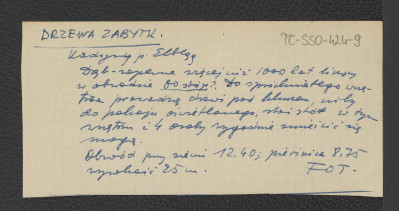 DRZEWA ZABYTK.
TC-SSO-424-9
Kadyny p. Elbląg
Dąb - zapewne więcej niż 1000 lat liczy
w obwodzie
Do spróchniałego wnę-
trza prowadzą drzwi pod kluczem, niby
do pokoju oświetlonego, stoi stół w tym
wnętrzu i 4 osoby wygodnie zmieścić się
mogą.
Obwód przy ziemi 12.40; pierśnica 8.75
wysokość 25 m.
FOT.